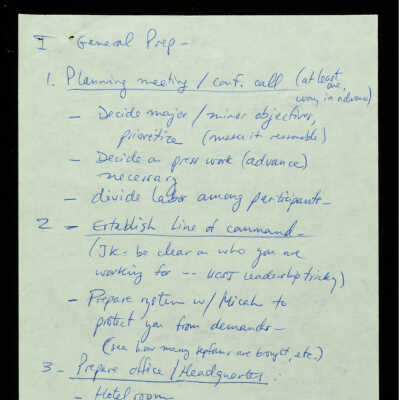 I General Prep -
1. Planning meeting / conf. call (at least one,
way in advance)
- Decide major / minor objectives,
prioritize (make it reasonable)
- Decide on press work (advance)
necessary
- divide labor among participants -
2 - Establish line of command -
(JK - be clear on who you are
working for -- leadership tricky)
- Prepare system w/ Micah to
protect you from demands -
(see how many are bought, etc.)
3 - Prepare office / Headquarters.
- Hotel room